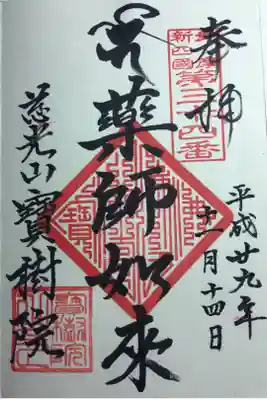 奉拝
新四國
第三十四番
平成廿九年
十一月十四日
藥師如來
慈光山寶樹院